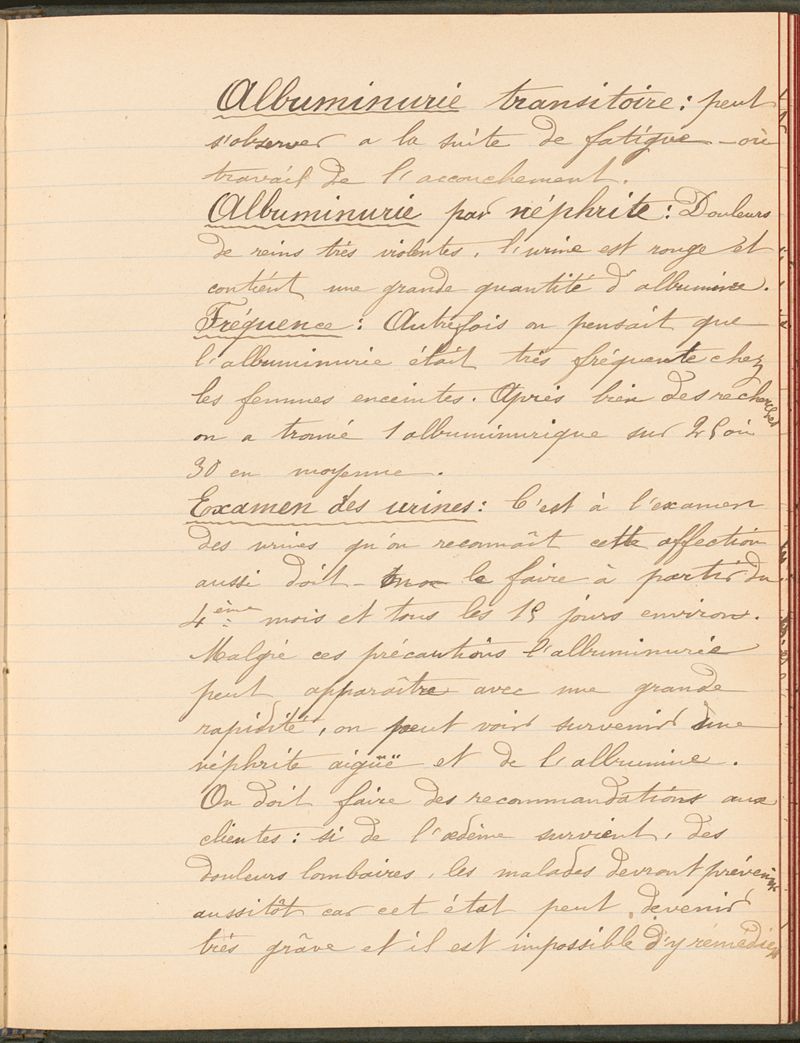 Albuminurie transitoire : peut
s'observer a la suite de fatigue - où
travail de l'accouchement.
Albuminurie par néphrite : Douleurs
de reins très violentes, l'urine est rouge et
contient une grande quantité d'albumine.
Fréquence : Autrefois on pensait que
l'albuminurie était très fréquente chez
les femmes enceintes. Après bien des recherches
on a trouvé 1 albuminurique sur 25 où
30 en moyenne.
Examen des urines : C'est à l'examen
des urines qu'on reconnaît cette affection
aussi doit - on le faire à partir du
4ème mois et tous les 15 jours environ.
Malgré ces précautions l'albuminurie
peut apparaître avec une grande
rapidité, on peut voir survenir une
néphrite aigüë et de l'albumine.
On doit faire des recommandations aux
clientes : si de l'œdème survient, des
douleurs lombaires, les malades devront prévenir
aussitôt car cet état peut devenir
très grâve et il est impossible d'y rémédier